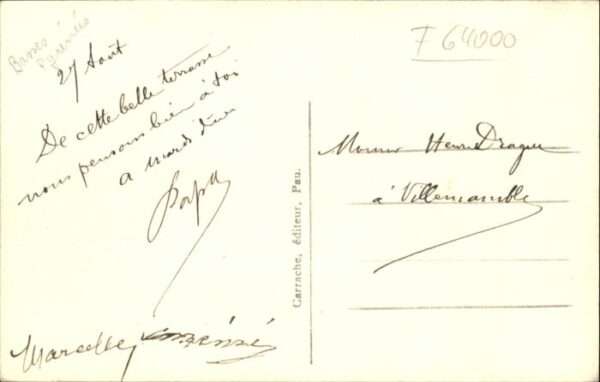 Basses
Pyrénées
F 64000
27 Août
De cette belle terrasse
nous pensons bien à toi
a mardi
Marcelle
Garrache, éditeur, Pau.
Monsieur Henri Drague
à Villemomble